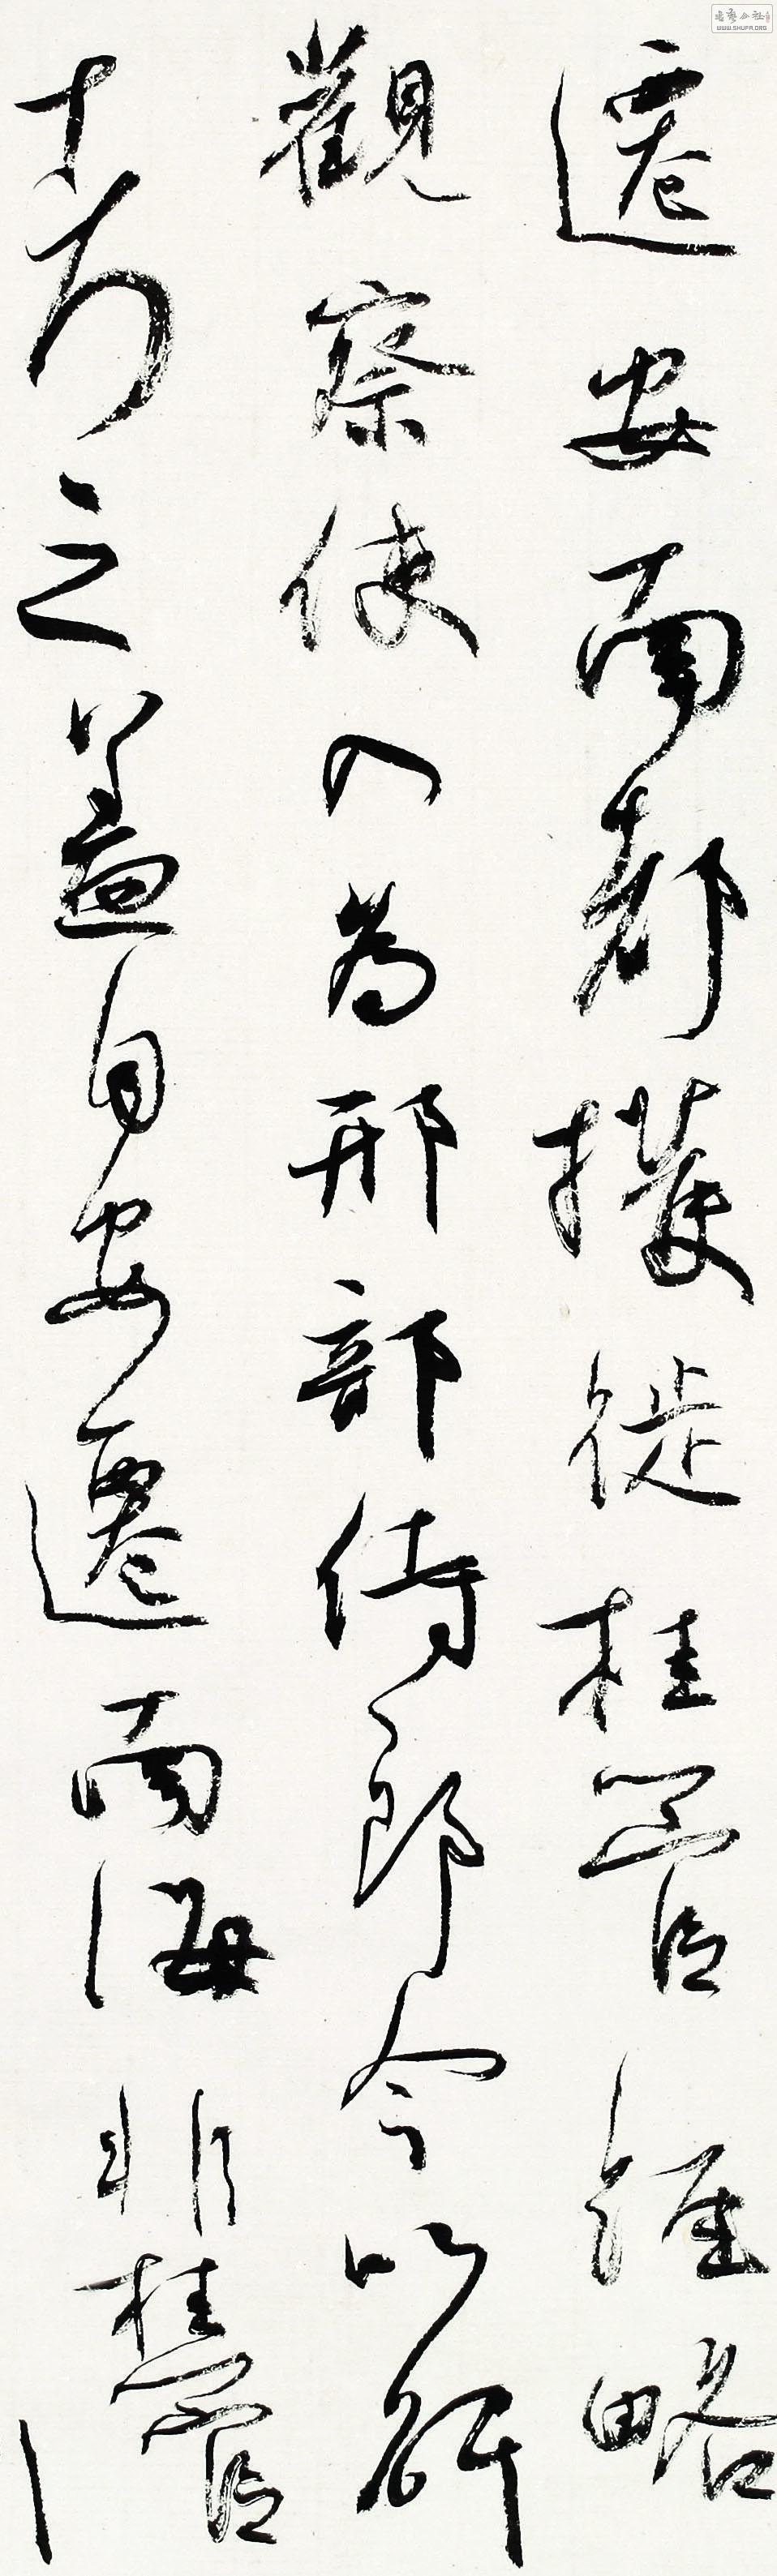 遷安南都護徙桂管經略
觀察使入為刑部侍郎今以碑
考之蓋自安遷南海非桂管